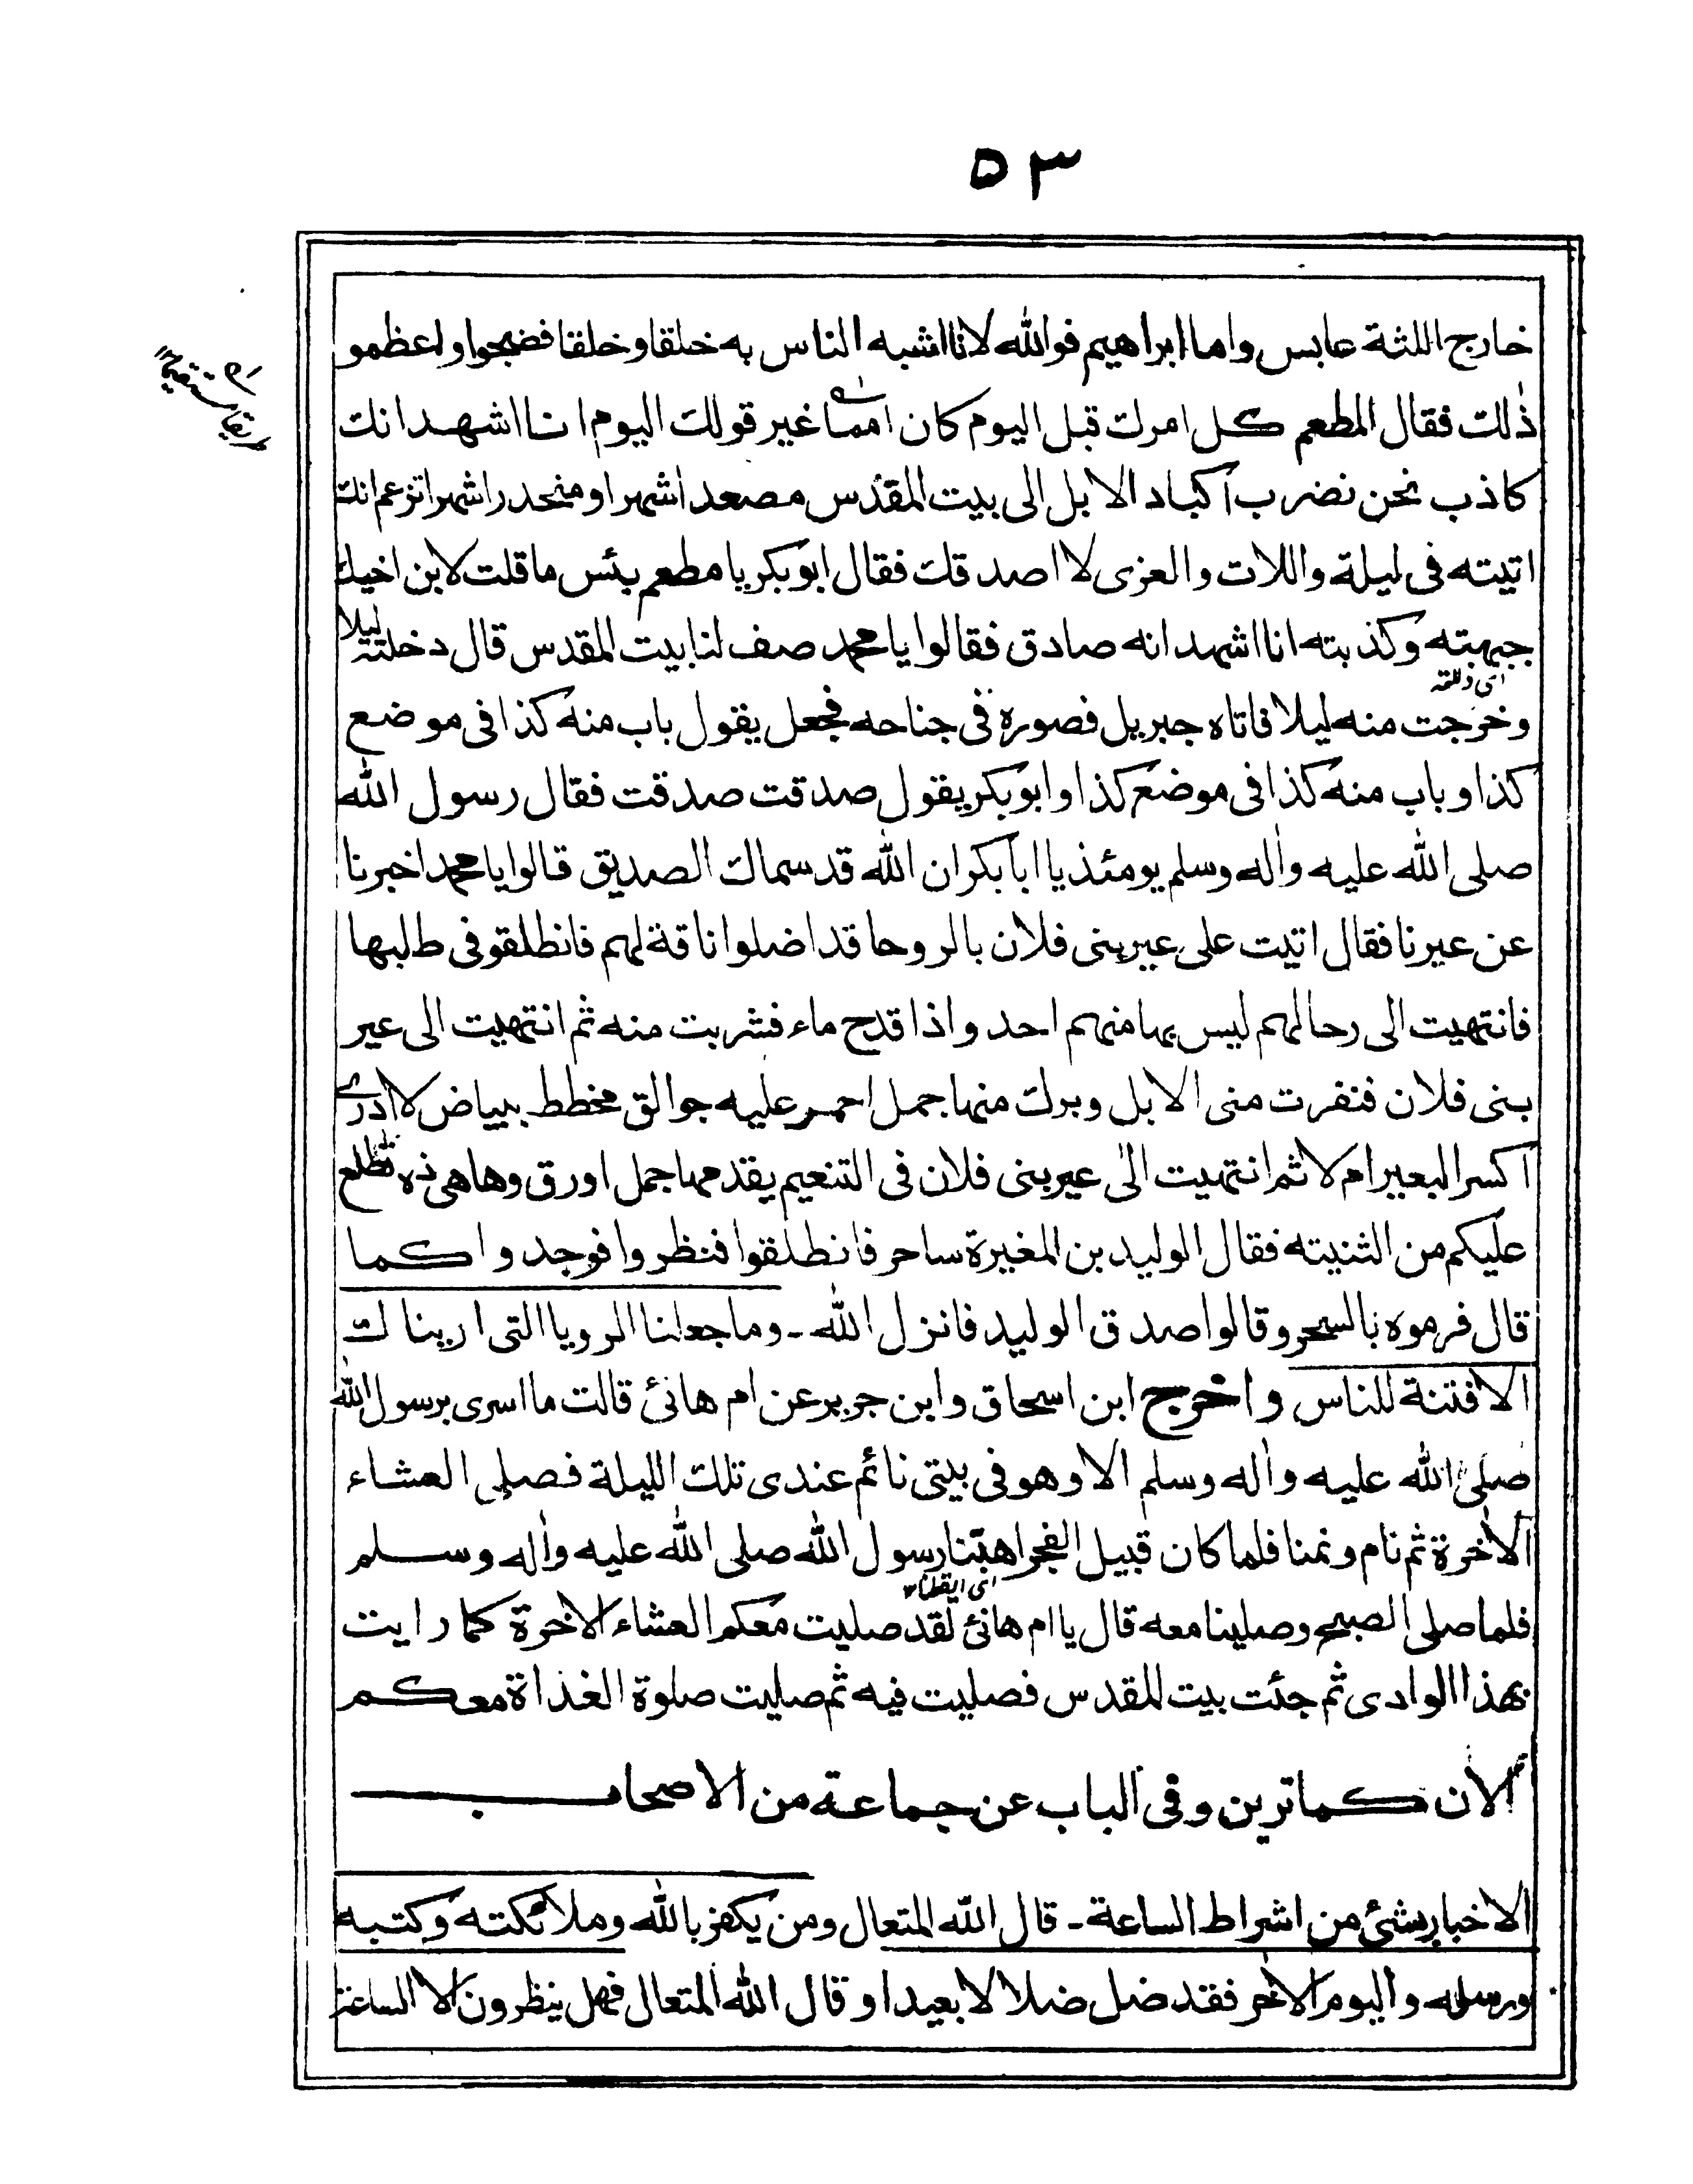 ٥٣
خارج اللثة عابس واما ابراهيم فوالله لانا اشبه الناس به خلقا وخلقا فضجوا واعظمو
ذٰلك فقال المطعم كل امرك قبل اليوم كان امما غير قولك اليوم انا اشهد انك
كاذب نحن نضرب اكباد الابل الى بيت المقدس مصعدا شهرا ومنحدرا شهرا تزعم انك
اتيته فى ليلة واللات والعزى لا اصدقك فقال ابو بكر يا مطعم بئس ما قلت لابن اخيك
جبهته وكذبته انا اشهد انه صادق فقالوا يا محمد صف لنا بيت المقدس قال دخلته ليلا
وخرجت منه ليلا فاتاه جبريل فصوره فى جناحه فجعل يقول باب منه كذا فى موضع
كذا وباب منه كذا فى موضع كذا وابو بكر يقول صدقت صدقت فقال رسول الله
صلى الله عليه واٰله وسلم يومئذ يا ابا بكر ان الله قد سماك الصديق قالوا يا محمد اخبرنا
عن عيرنا فقال اتيت على عير بنى فلان بالروحا قد اضلوا ناقة لهم فانطلقو فى طلبها
فانتهيت الى رحالهم ليس بها منهم احد واذا قدح ماء فشربت منه ثم انتهيت الى عير
بنى فلان فنفرت منى الابل وبرك منها جمل احمر عليه جوالق مخطط ببياض لا ادرى
اكسر البعير ام لا ثم انتهيت الى عير بنى فلان فى التنعيم يقدمها جمل اورق وها هى ذه تطلع
عليكم من الثنيته فقال الوليد بن المغيرة ساحر فانطلقوا فنظروا فوجدوا كما
قال فرموه بالسحر وقالوا صدق الوليد فانزل الله ـ وما جعلنا الرويا التى اريناك
الا فتنة للناس واخرج ابن اسحاق وابن جرير عن ام هانئ قالت ما اسرى برسول الله
صلى الله عليه واٰله وسلم الا وهو فى بيتى نائم عندى تلك الليلة فصلى العشاء
الاٰخرة ثم نام ونمنا فلما كان قبيل الفجر اهبّنا رسول الله صلى الله عليه واٰله وسلم
اى ايقظنا
فلما صلى الصبح وصلينا معه قال يا ام هانئ لقد صليت معكم العشاء الاٰخرة كما رايت
بهذا الوادى ثم جئت بيت المقدس فصليت فيه ثم صليت صلوة الغداة معكم
الاٰن كما ترين وفى الباب عن جماعة من الاصحاب
الاخبار بشئ من اشراط الساعة ـ قال الله المتعال ومن يكفر بالله وملائكته وكتبه
ورسله واليوم الاٰخر فقد ضل ضلالا بعيدا وقال الله المتعال فهل ينظرون الا الساعة